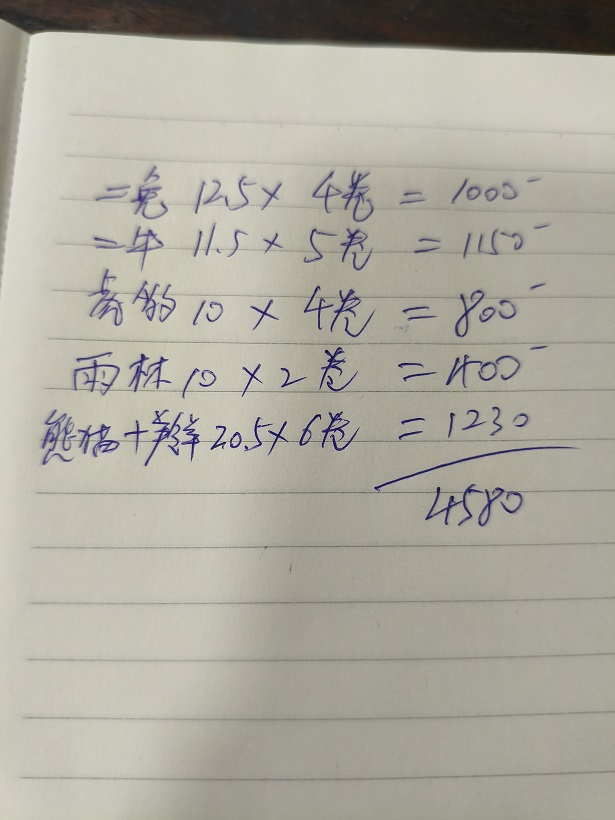 二兔 12.5× 4卷 = 1000-
二牛 11.5 × 5卷 = 1150-
10 × 4卷 = 800-
雨林 10 × 2卷 = 400-
熊猫+群 20.5× 6卷 = 1230
4580